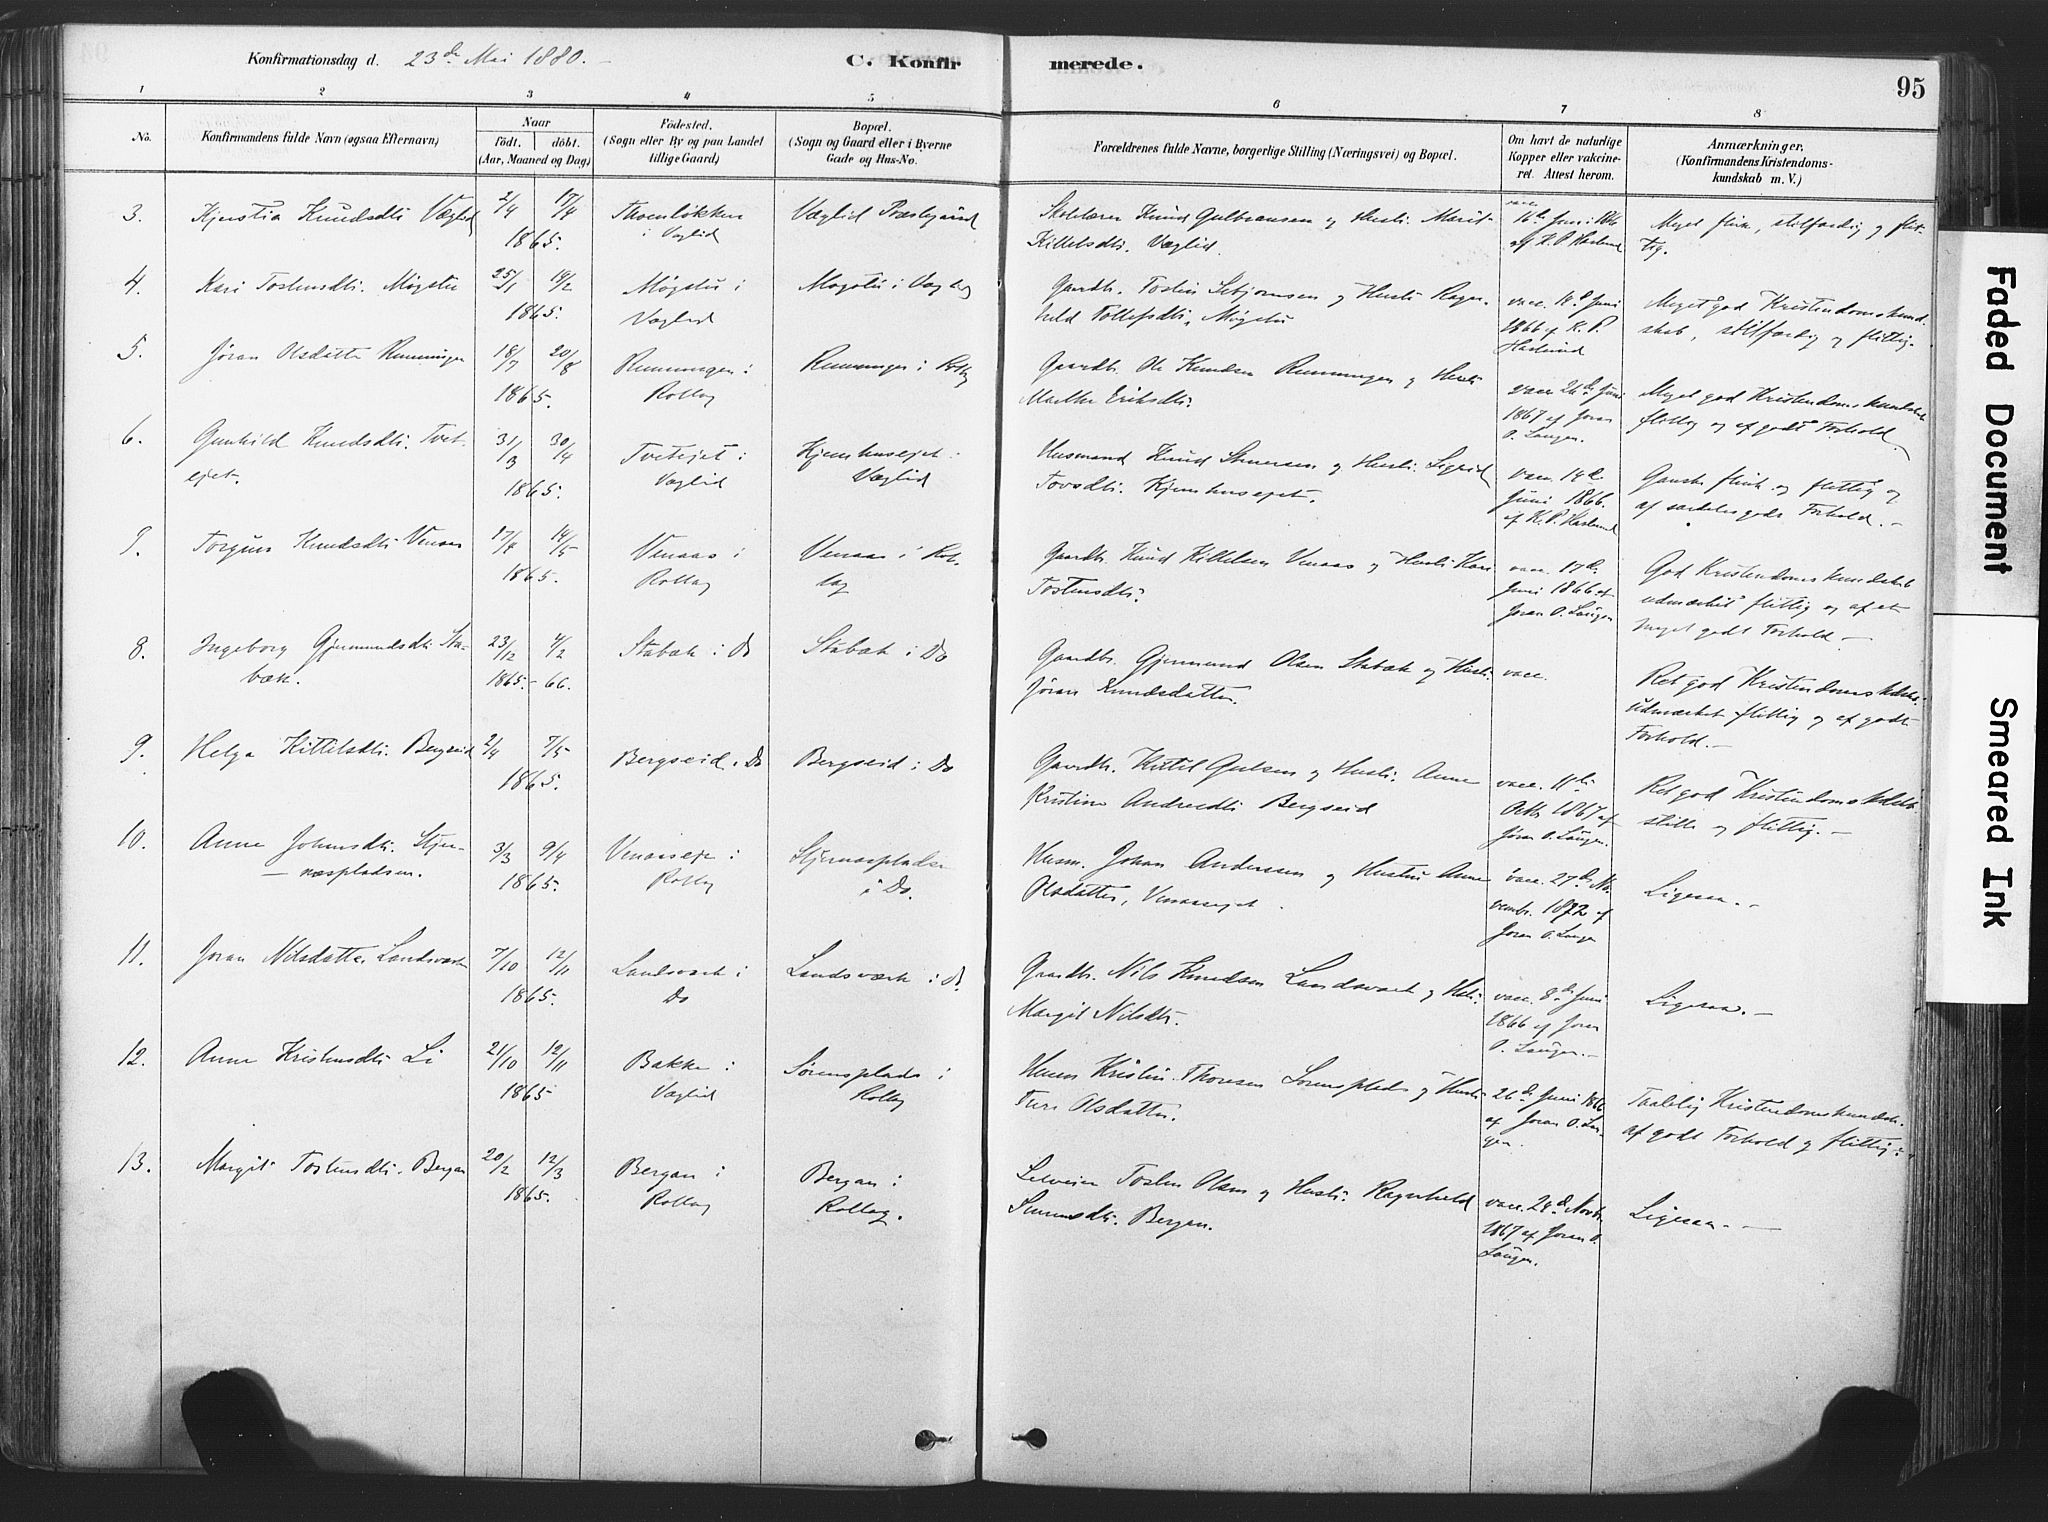 Konfirmationsdag d. 23de Mai 1880. -
C. Konfir
merede.
95
1 2 3 4 5 6 7 8
No.
Konfirmandens fulde Navn (ogsaa Efternavn)
Naar
födt. döbt.
(Aar, Maaned og Dag)
Födested.
(Sogn eller By og paa Landet
tillige Gaard)
Bopæl.
(Sogn og Gaard eller i Byerne
Gade og Hus-No.
Forældrenes fulde Navne, borgerlige Stilling (Næringsvei) og Bopæl.
Om havt de naturlige
Kopper eller vakcine-
ret. Attest herom.
Anmærkninger.
(Konfirmandens Kristendoms-
kundskab m. V.)
3. Kjerstia Knudsdtr Væglid 2/4 17/4
1865.
i Væglid
Væglid Præstegaard
Skolelærer Knud Gulbransen og Hustr. Marit
Kittelsdtr. Væglid.
vacc.
16de Juni 1866
af K. P. Haslund
Meget flink, stilfærdig og flit-
tig.
4. Kari Tostensdtr. Møgstu 25/1 19/2
1865.
Møgstu i
Væglid
Møgstu i Væglid
Gaardbr. Tostein Sebjørnsen og Hustr. Ragn-
hild Tollefsdtr. Møgstu
vacc. 18de Juni
1866 af K. P.
Haslund
Meget god Kristendomskund-
skab, stilfærdig og flittig.
5. Jøran Olsdatter Rumningen 18/7 20/8
1865.
Rumningen i
Rollag
Rumningen i Rollag
Gaardbr. Ole Knudsen Rumningen og Hustr.
Marthe Eriksdtr.
vacc. 26de Juni
1867 af Joran
O. Laugen.
Meget god Kristendomskundskab
flittig og af godt Forhold.
6. Gunhild Knudsdtr. Tvet-
ejet. 31/3 30/4
1865.
Tvetejet i
Væglid
Kjemhusejet i
Væglid
Husmand Knud og Hustr. Sigrid
Tovsdtr. Kjemhusejet.
vacc. 18de
Juni 1866.
af K. P. Haslund
Ganske flink og flittig og
af særdeles godt Forhold. -
7. Torgun Knudsdtr Venaas 17/4 14/5
1865.
Venaas i
Rollag
Venaas i Rol-
lag
Gaardbr. Knud Kittelsen Venaas og Hustr. Kari
Tostensdtr.
vacc. 17de
Juni 1866 af
Joran O. Laugen
God Kristendomskundskab
udmærket flittig og af et
meget godt Forhold -
8. Ingeborg Gjermundsdtr. Sta-
bæk. 23/12 4/2
1865. - 66.
Stabæk i Do
Stabæk i Do
Gaardbr. Gjermund Olsen Stabæk og Hustr.
Jøran Knudsdatter.
vacc.
Ret god Kristendomskdskb.
udmærket flittig og af godt
Forhold. -
9. Helga Kittelsdtr. Bergseid 2/4 7/5
1865.
Bergseid i Do
Bergseid i Do
Gaardbr. Kittil Gulsen og Hustr. Anne
Kristine Andreasdtr. Bergseid
vacc. 11te
Octbr 1867 af
Jøran O. Laugen.
Ret god Kristendomskdskb.
stille og flittig. -
10. Anne Johnsdtr. Stjer-
- næspladsen. 3/3 9/4
1865.
Venaaseje i
Rollag
Stjernæspladsen
i Do.
Husm. Johan Anderssen og Hustru Anne
Olsdatter, Venaasejet.
vacc. 27de No-
vembr. 1872 af
Joran O. Laugen
Ligesaa. -
11. Jøran Nilsdatter Landsværk 7/10 12/11
1865.
Landsværk i
Do
Landsværk i Do.
Gaardbr. Nils Knudsen Landsværk og Hustr.
Margit Nilsdtr.
vacc. 8de Juni
1866 af Joran
O. Laugen. -
Ligesaa. -
12. Anne Kristensdtr Li 21/10 12/11
1865
Bakke i
Væglid
Sørensplads i
Rollag
Husm Kristen Thoresen Sorensplads og Hustr.
Turi Olsdatter.
26de Juni 1866
af Joran O. Lau-
gen.
Taalelig Kristendomskundsk.
af godt Forhold og flittig.
13. Margit Tostensdtr. Bergan 20/2 12/3
1865.
Bergan i
Rollag
Bergan i
Rollag.
Selveier Tosten Olsen og Hustr. Ragnhild
Simensdtr. Bergan.
vacc. 28de Novbr.
1867 af Joran O.
Laugen.
Ligesaa. -
Faded Document
Smeared Ink